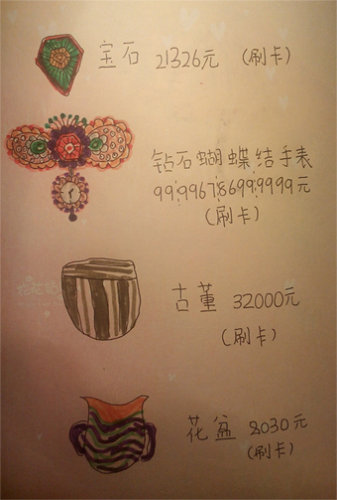 宝石 21326元 (刷卡)
钻石蝴蝶结手表
99.9967.8699.9999元
(刷卡)
古董 32000元
(刷卡)
花盆 8030元
(刷卡)